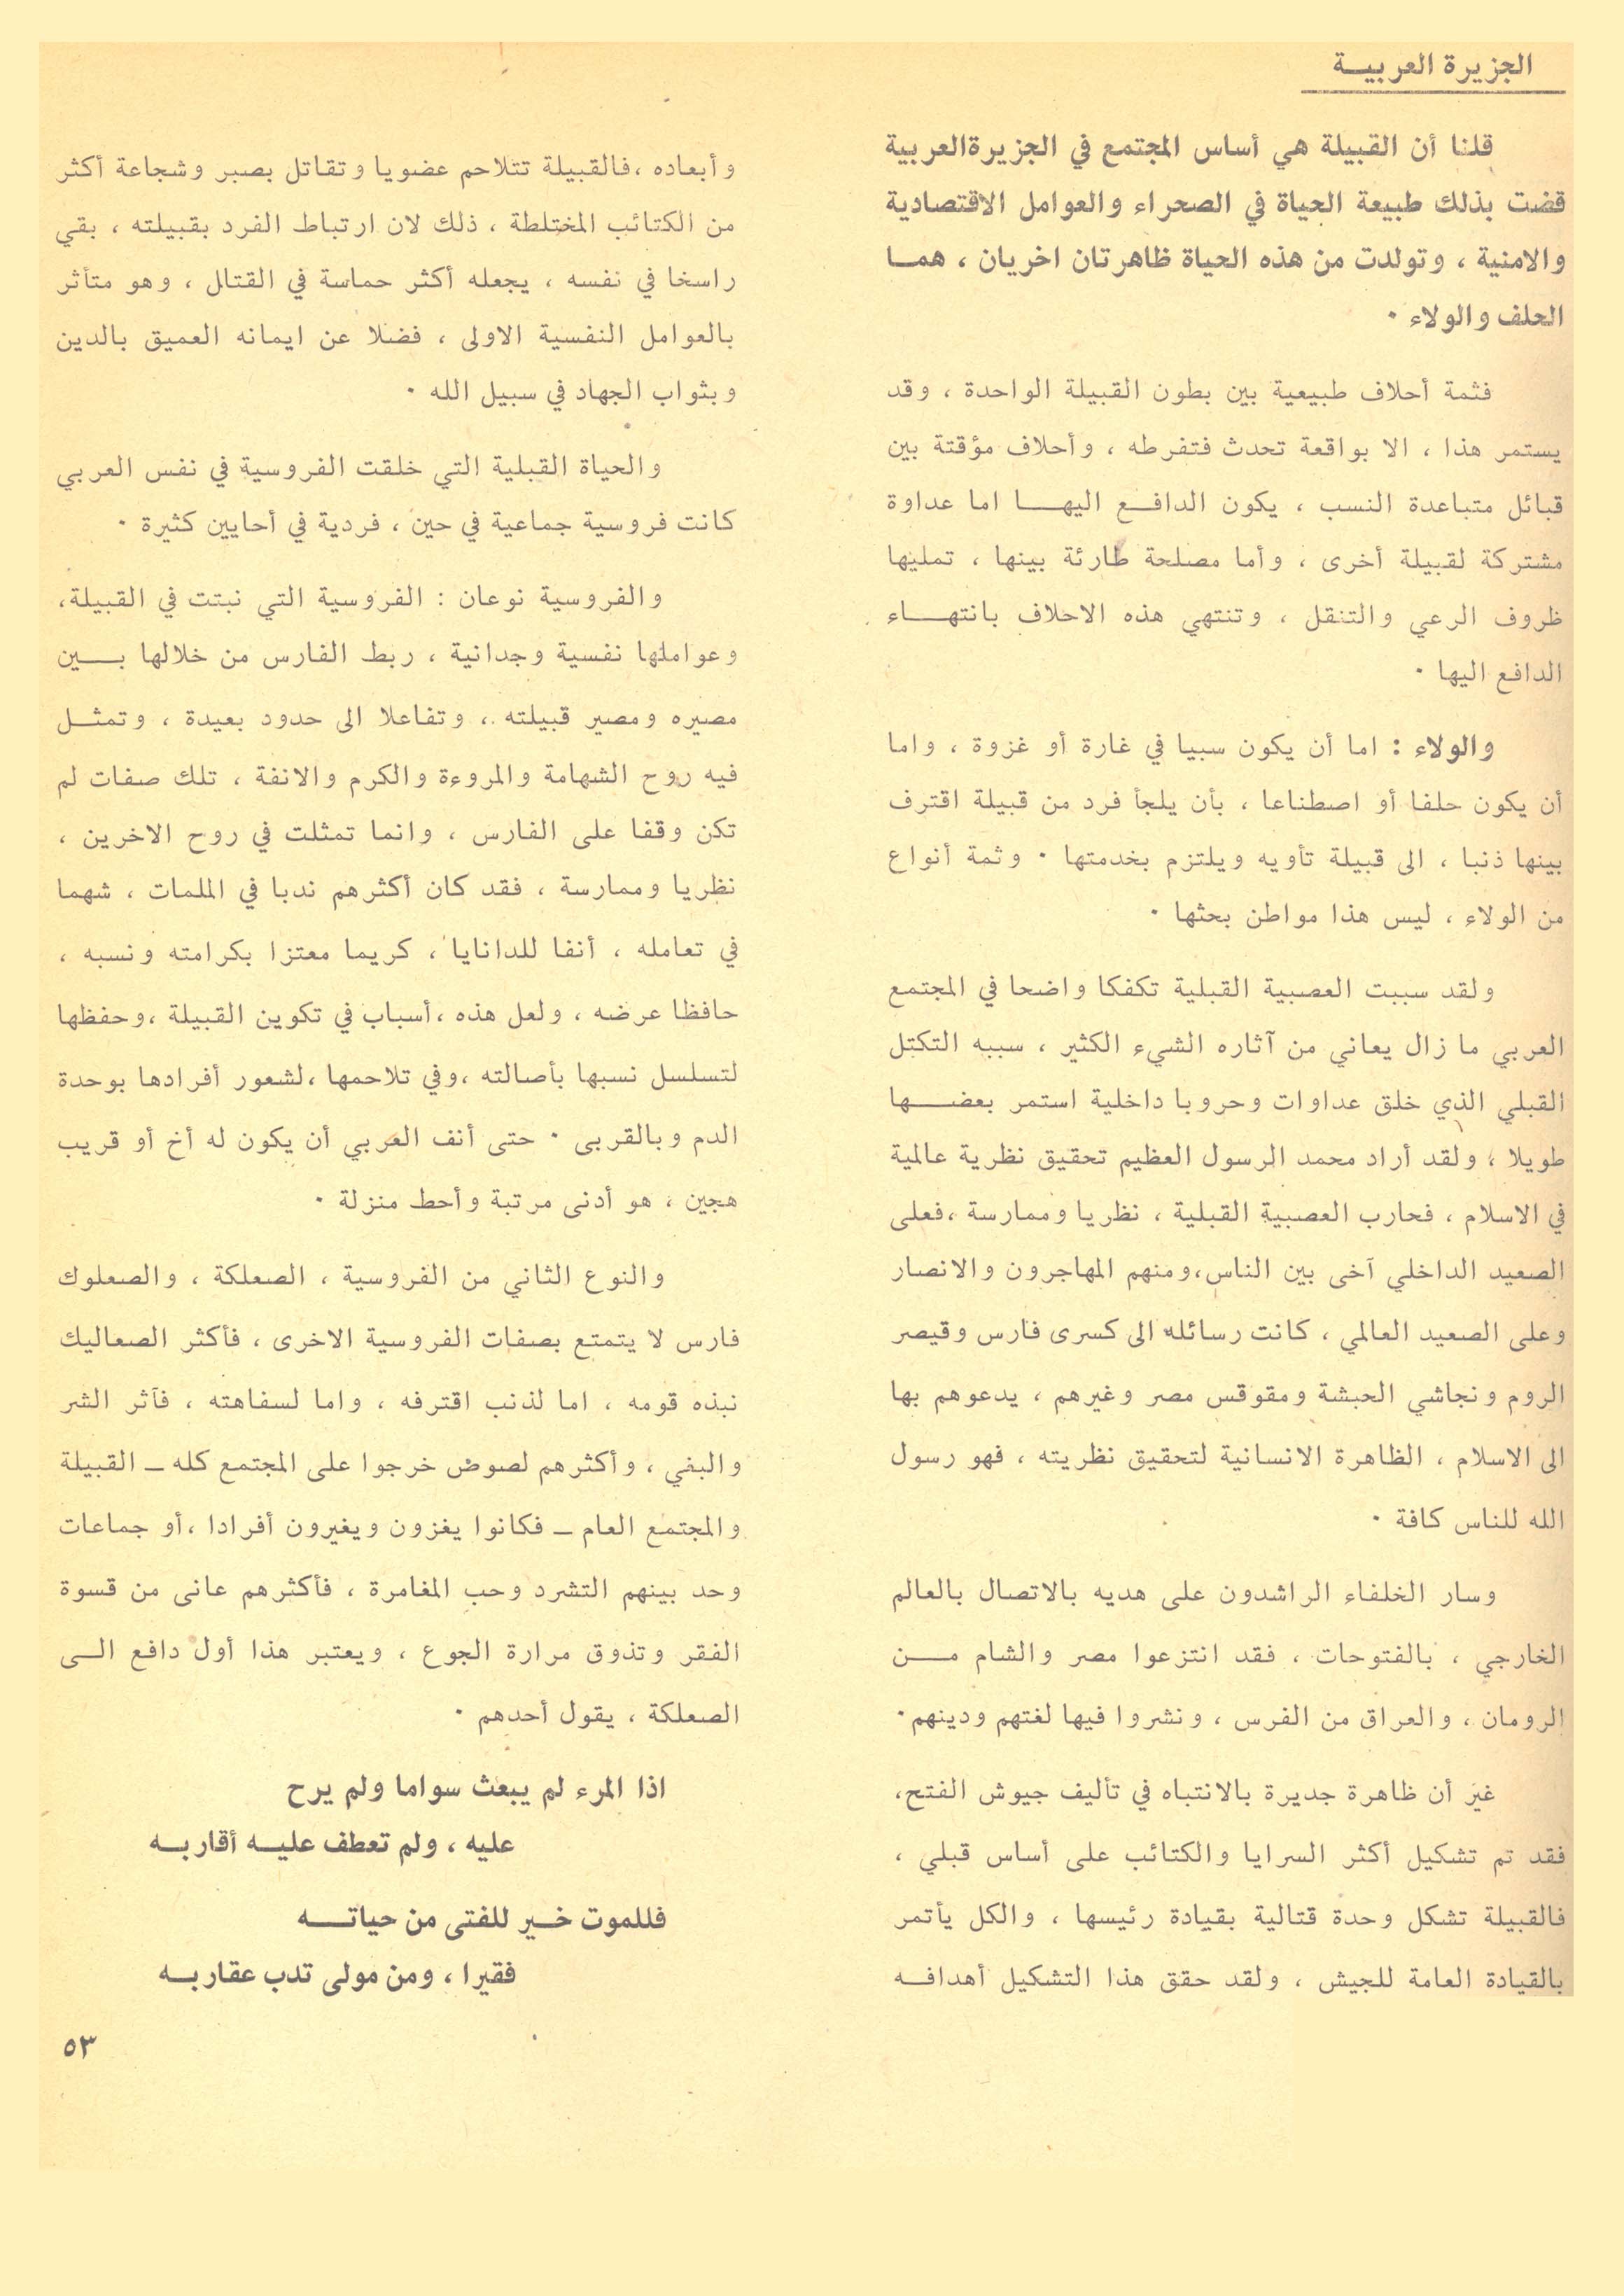 الجزيرة العربيـة
قلنا أن القبيلة هي أساس المجتمع في الجزيرةالعربية
قضت بذلك طبيعة الحياة في الصحراء والعوامل الاقتصادية
والامنية ، وتولدت من هذه الحياة ظاهرتان اخريان ، همـا
الحلف والولاء ٠
فثمة أحلاف طبيعية بين بطون القبيلة الواحدة ، وقد
يستمر هذا ، الا بواقعة تحدث فتفرطه ، وأحلاف مؤقتة بين
قبائل متباعدة النسب ، يكون الدافـع اليهـا اما عداوة
مشتركة لقبيلة أخرى ، وأما مصلحة طارئة بينها ، تمليها
ظروف الرعي والتنقل ، وتنتهي هذه الاحلاف بانتهـاء
الدافع اليها ٠
والولاء : اما أن يكون سبيا في غارة أو غزوة ، واما
أن يكون حلفا أو اصطناعا ، بأن يلجأ فرد من قبيلة اقترف
بينها ذنبا ، الى قبيلة تأويه ويلتزم بخدمتها ٠ وثمة أنواع
من الولاء ، ليس هذا مواطن بحثها ٠
ولقد سببت العصبية القبلية تكفكا واضحا في المجتمع
العربي ما زال يعاني من آثاره الشيء الكثير ، سببه التكتل
القبلي الذي خلق عداوات وحروبا داخلية استمر بعضـها
طويلا ، ولقد أراد محمد الرسول العظيم تحقيق نظرية عالمية
في الاسلام ، فحارب العصبية القبلية ، نظريا وممارسة ،فعلى
الصعيد الداخلي آخى بين الناس،ومنهم المهاجرون والانصار
وعلى الصعيد العالمي ، كانت رسائله الى كسرى فارس وقيصر
الروم ونجاشي الحبشة ومقوقس مصر وغيرهم ، يدعوهم بها
الى الاسلام ، الظاهرة الانسانية لتحقيق نظريته ، فهو رسول
الله للناس كافة ٠
وسار الخلفاء الراشدون على هديه بالاتصال بالعالم
الخارجي ، بالفتوحات ، فقد انتزعوا مصر والشام مـن
الرومان ، والعراق من الفرس ، ونشروا فيها لغتهم ودينهم٠
غير أن ظاهرة جديرة بالانتباه في تأليف جيوش الفتح،
فقد تم تشكيل أكثر السرايا والكتائب على أساس قبلي ،
فالقبيلة تشكل وحدة قتالية بقيادة رئيسها ، والكل يأتمر
بالقيادة العامة للجيش ، ولقد حقق هذا التشكيل أهدافـه
وأبعاده ،فالقبيلة تتلاحم عضويا وتقاتل بصبر وشجاعة أكثر
من الكتائب المختلطة ، ذلك لان ارتباط الفرد بقبيلته ، بقي
راسخا في نفسه ، يجعله أكثر حماسة في القتال ، وهو متأثر
بالعوامل النفسية الاولى ، فضلا عن ايمانه العميق بالدين
وبثواب الجهاد في سبيل الله ٠
والحياة القبلية التي خلقت الفروسية في نفس العربي
كانت فروسية جماعية في حين ، فردية في أحايين كثيرة ٠
والفروسية نوعان : الفروسية التي نبتت في القبيلة،
وعواملها نفسية وجدانية ، ربط الفارس من خلالها بـين
مصيره ومصير قبيلته ، وتفاعلا الى حدود بعيدة ، وتمثـل
فيه روح الشهامة والمروءة والكرم والانفة ، تلك صفات لم
تكن وقفا على الفارس ، وانما تمثلت في روح الاخرين ،
نظريا وممارسة ، فقد كان أكثرهم ندبا في الملمات ، شهما
في تعامله ، أنفا للدانايا ، كريما معتزا بكرامته ونسبه ،
حافظا عرضه ، ولعل هذه ،أسباب في تكوين القبيلة ،وحفظها
لتسلسل نسبها بأصالته ،وفي تلاحمها ،لشعور أفرادها بوحدة
الدم وبالقربى ٠ حتى أنف العربي أن يكون له أخ أو قريب
هجين ، هو أدنى مرتبة وأحط منزلة ٠
والنوع الثاني من الفروسية ، الصعلكة ، والصعلوك
فارس لا يتمتع بصفات الفروسية الاخرى ، فأكثر الصعاليك
نبذه قومه ، اما لذنب اقترفه ، واما لسفاهته ، فآثر الشر
والبغي ، وأكثرهم لصوص خرجوا على المجتمع كله ــ القبيلة
والمجتمع العام ــ فكانوا يغزون ويغيرون أفرادا ،أو جماعات
وحد بينهم التشرد وحب المغامرة ، فأكثرهم عانى من قسوة
الفقر وتذوق مرارة الجوع ، ويعتبر هذا أول دافع الـى
الصعلكة ، يقول أحدهم ٠
اذا المرء لم يبعث سواما ولم يرح
عليه ، ولم تعطف عليـه أقاربـه
فللموت خـير للفتى من حياتـه
فقيرا ، ومن مولى تدب عقاربـه
٥٣